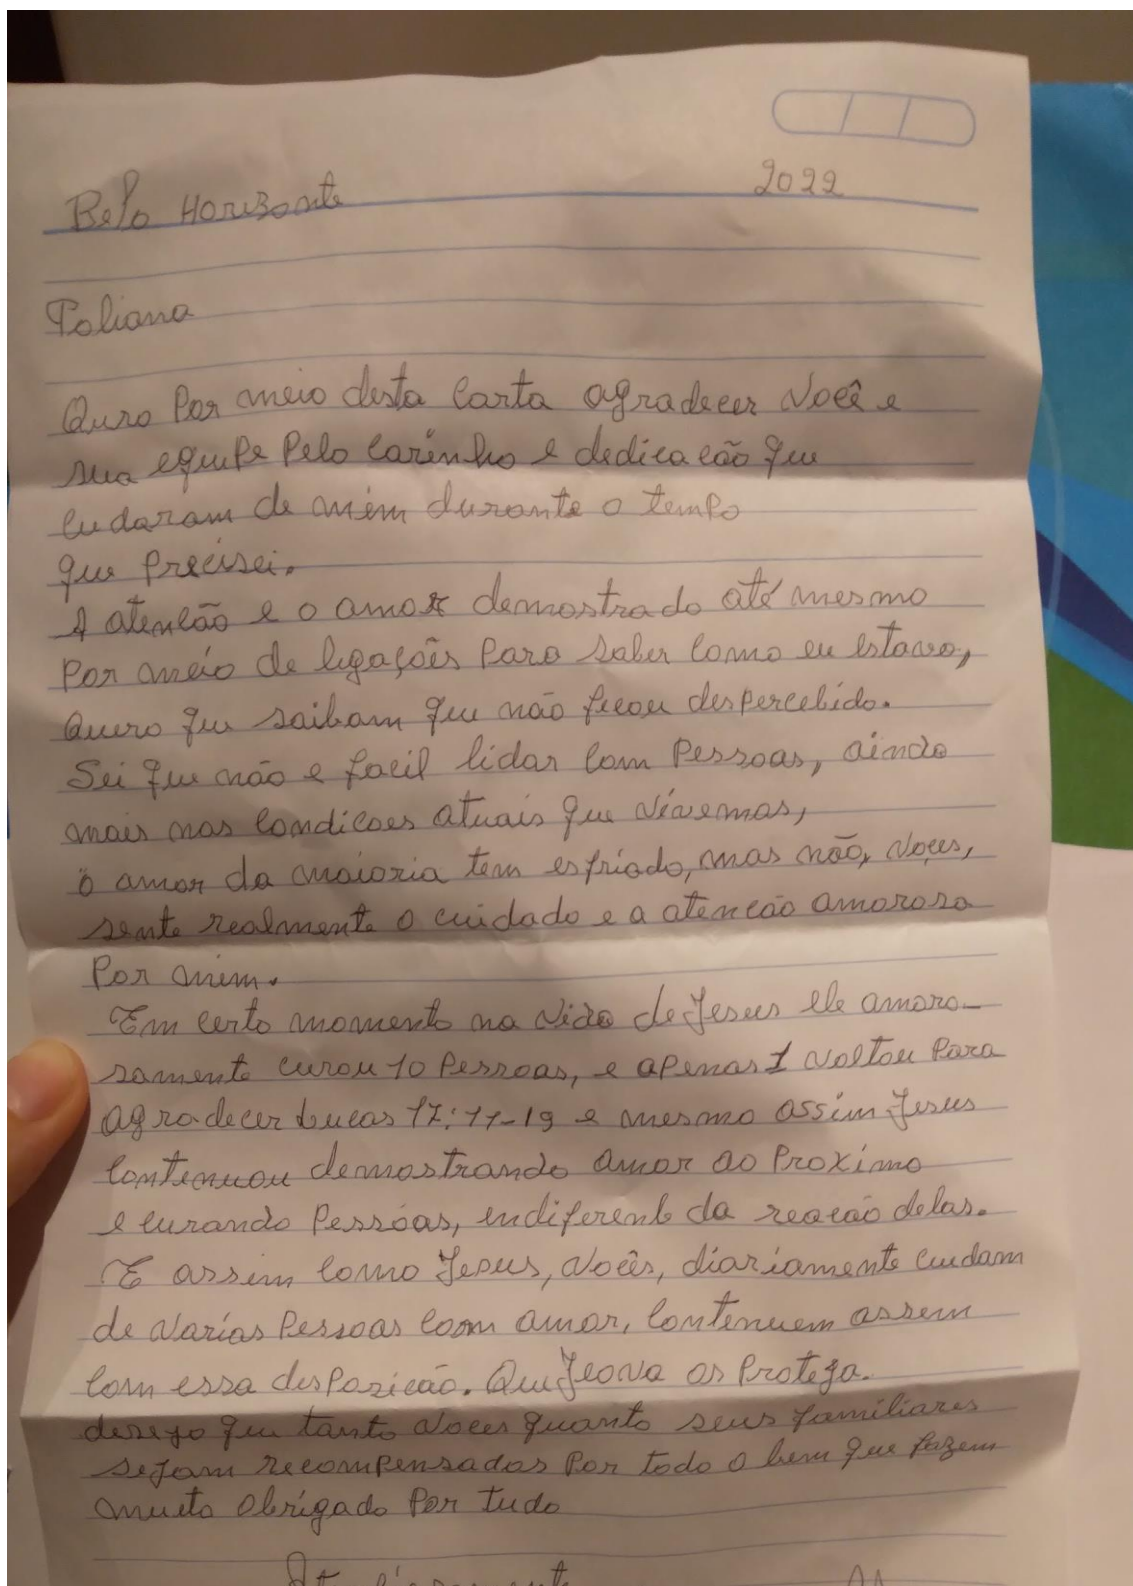 Belo Horizonte 2022
Poliana
Quro Por meio desta Carta agradecer Você e
sua equipe Pelo Carinho e dedicacão que
Cudaram de mim durante o tempo
que Precisei.
A atencão e o amor demostrado até mesmo
Por meio de ligações Para saber Como eu estava,
Quero que saibam que não ficou despercebido.
Sei que não e facil lidar Com Pessoas, ainda
mais nas Condicoes atuais que vivemos,
o amor da maioria tem esfriado, mas não, voçes,
sente realmente o cuidado e a atencão amorosa
Por mim.
Em certo momento na vida de Jesus ele amoro-
samente curou 10 Pessoas, e apenas 1 voltou Para
agradecer Lucas 17:11-19 e mesmo assim Jesus
Contenuou demostrando amor ao Proximo
e curando Pessoas, endiferente da reacão delas.
E assim Como Jesus, vocês, diariamente cuidam
de varias Pessoas Com amor, Contenuem assem
Com essa desposicão. Que Jeova os Proteja.
desejo que tanto voces quanto seus familiares
sejam recompensados Por todo o bem que fazem
muito obrigado Por tudo